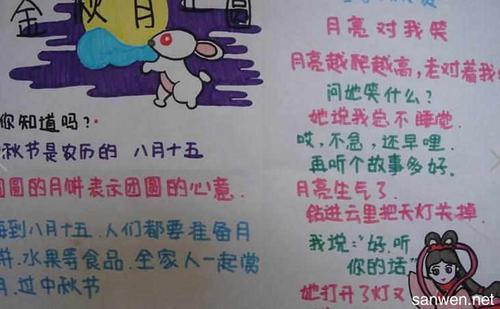 金秋月正圆
你知道吗?
中秋节是农历的 八月十五
圆圆的月饼表示团圆的心意.
每到八月十五.人们都要准备月
饼.水果等食品.全家人一起赏
月.过中秋节
月亮对我笑
月亮越爬越高,老对着我
问她笑什么?
她说我总不睡觉.
哎,不急,还早哩.
再听个故事多好.
月亮生气了.
钻进云里把天灯关掉.
我说:"好.听
你的话"
她打开了灯又
sanwen.net